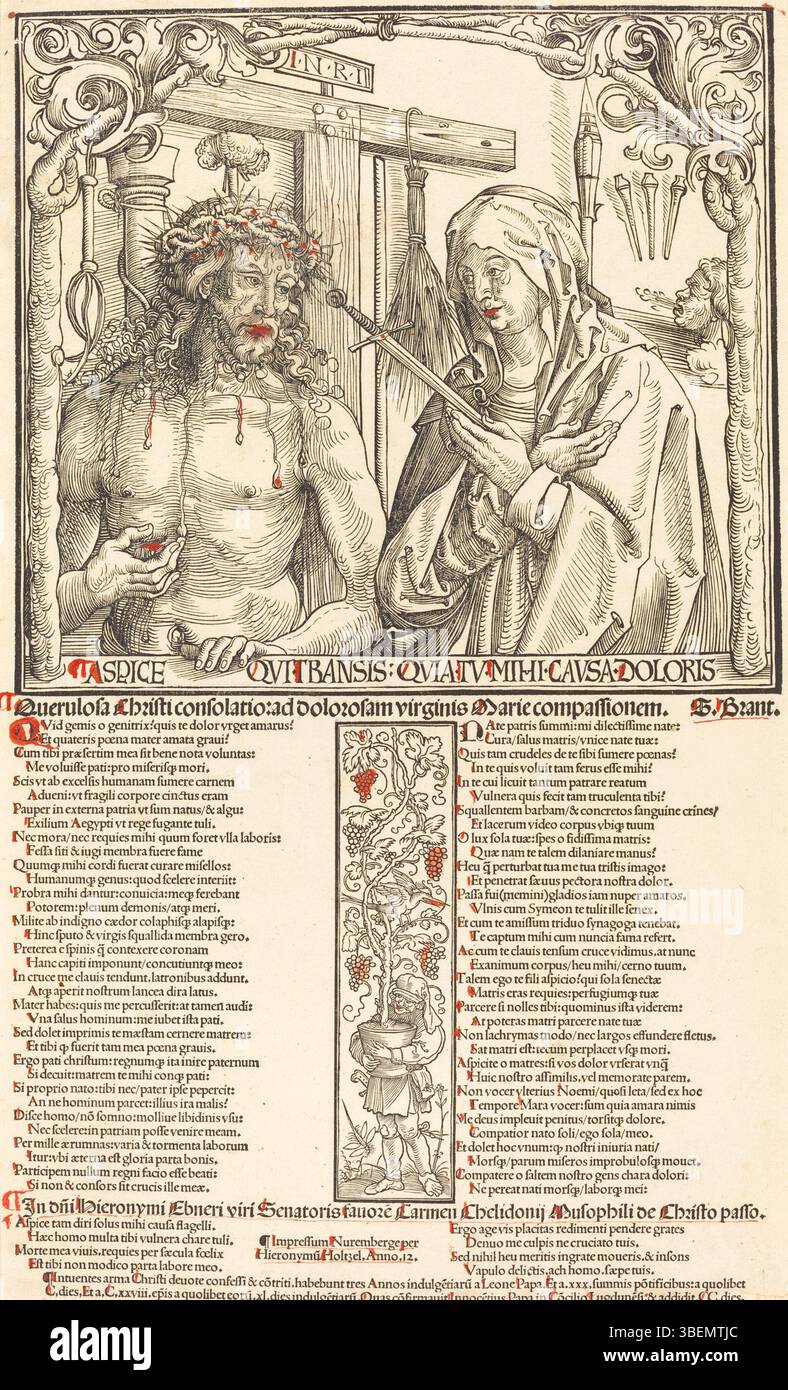 I·N·R·I
ASPICE QVI TRANSIS: QVIA TV MIHI CAVSA DOLORIS
Querulosa Christi consolatio: ad dolorosam virginis Marie compassionem. S. Brant.
QVid gemis o genitrix? quis te dolor vrget amarus?
Et quateris pœna mater amata graui?
Cum tibi præsertim mea sit bene nota voluntas:
Me voluisse pati: pro miserisq; mori.
Scis vt ab excelsis humanam sumere carnem
Adueni: vt fragili corpore cinctus eram
Pauper in externa patria vt sum natus/& algu:
Exilium Aegypti vt rege fugante tuli.
Nec mora/nec requies mihi quum foret vlla laboris:
Fessa siti & iugi membra fuere fame
Quumq; mihi cordi fuerat curare misellos:
Humanumq; genus: quod scelere interiit:
Probra mihi dantur: conuicia: meq; ferebant
Potorem: plenum demonis/atq; meri.
Milite ab indigno cædor colaphisq; alapisq;:
Hinc sputo & virgis squallida membra gero.
Preterea e spinis q̄ contexere coronam
Hanc capiti imponunt/concutiuntq; meo:
In cruce me clauis tendunt. latronibus addunt.
Atq; aperit nostrum lancea dira latus.
Mater habes: quis me percusserit: at tamen audi:
Vna salus hominum: me iubet ista pati.
Sed dolet imprimis te mæstam cernere matrem:
Et tibi q; fuerit tam mea pœna grauis.
Ergo pati christum: regnumq; ita inire paternum
Si decuit: matrem te mihi conq; pati:
Si proprio nato: tibi nec/pater ipse pepercit:
An ne hominum parcet: illius ira malis?
Disce homo/nō somno: molliue libidinis vsu:
Nec scelere: in patriam posse venire meam.
Per mille ærumnas: varia & tormenta laborum
Itur: vbi æterna est gloria parta bonis.
Participem nullum regni facio esse beati:
Si non & consors sit crucis ille meæ.
NAte patris summi: mi dilectissime nate:
Cura/salus matris/vnice nate tuæ:
Quis tam crudeles de te sibi sumere pœnas?
In te quis voluit tam ferus esse mihi?
In te cui licuit tantum patrare reatum
Vulnera quis fecit tam truculenta tibi?
Squallentem barbam/& concretos sanguine crines/
Et lacerum video corpus vbiq; tuum
O lux sola tuæ: spes o fidissima matris:
Quæ nam te talem dilaniare manus?
Heu q̄ perturbat tua me tua tristis imago:
Et penetrat sæuus pectora nostra dolor.
Passa fui (memini) gladios iam nuper amaros.
Vlnis cum Symeon te tulit ille senex.
Et cum te amissum triduo synagoga tenebat.
Te captum mihi cum nuncia fama refert.
Ac cum te clauis tensum cruce vidimus. at nunc
Exanimum corpus/heu mihi/cerno tuum.
Talem ego te fili aspicio? qui sola senectæ
Matris eras requies: perfugiumq; tuæ
Parcere si nolles tibi: quominus ista viderem:
At poteras matri parcere nate tuæ
Non lachrymas modo/nec largos effundere fletus.
Sat matri est: tecum perplacet vsq; mori.
Aspicite o matres: si vos dolor vrserat vnq̄
Huic nostro assimilis. vel memorate parem.
Non vocer vlterius Noemi/quosi leta/sed ex hoc
Tempore Mara vocer: sum quia amara nimis
Me deus impleuit penitus/torsitq; dolore.
Compatior nato soli/ego sola/meo.
Et dolet hoc vnum: q; nostri iniuria nati/
Morsq;/parum miseros improbulosq; mouet.
Compatere o saltem nostro gens chara dolori:
Ne pereat nati morsq;/laborq; mei:
In dn̄i Hieronymi Ebneri viri Senatoris fauorē Carmen Chelidonij Musophili de Christo passo.
Aspice tam diri solus mihi causa flagelli.
Hæc homo multa tibi vulnera chare tuli.
Morte mea viuis. requies per sæcula fœlix
Est tibi non modico parta labore meo.
Impressum Nurembergę per
Hieronymū Holtzel. Anno. 12.
Ergo age vis placitas redimenti pendere grates
Denuo me culpis ne cruciato tuis.
Sed nihil heu meritis ingrate moueris. & insons
Vapulo delictis. ach homo. sæpe tuis.
Intuentes arma Christi deuote confessi & cōtriti. habebunt tres Annos indulgētiarū a Leone Papa. Et a. xxx. summis pōtificibus: a quolibet
C. dies. Et a. C. xxviii. epīs a quolibet eorū. xl. dies indulgētiarū. Quas cōfirmauit Innocētius Papa in Cōcilio Lugdunēsi: & addidit. CC. dies.
alamy
Image ID: 3BEMTJC
www.alamy.com